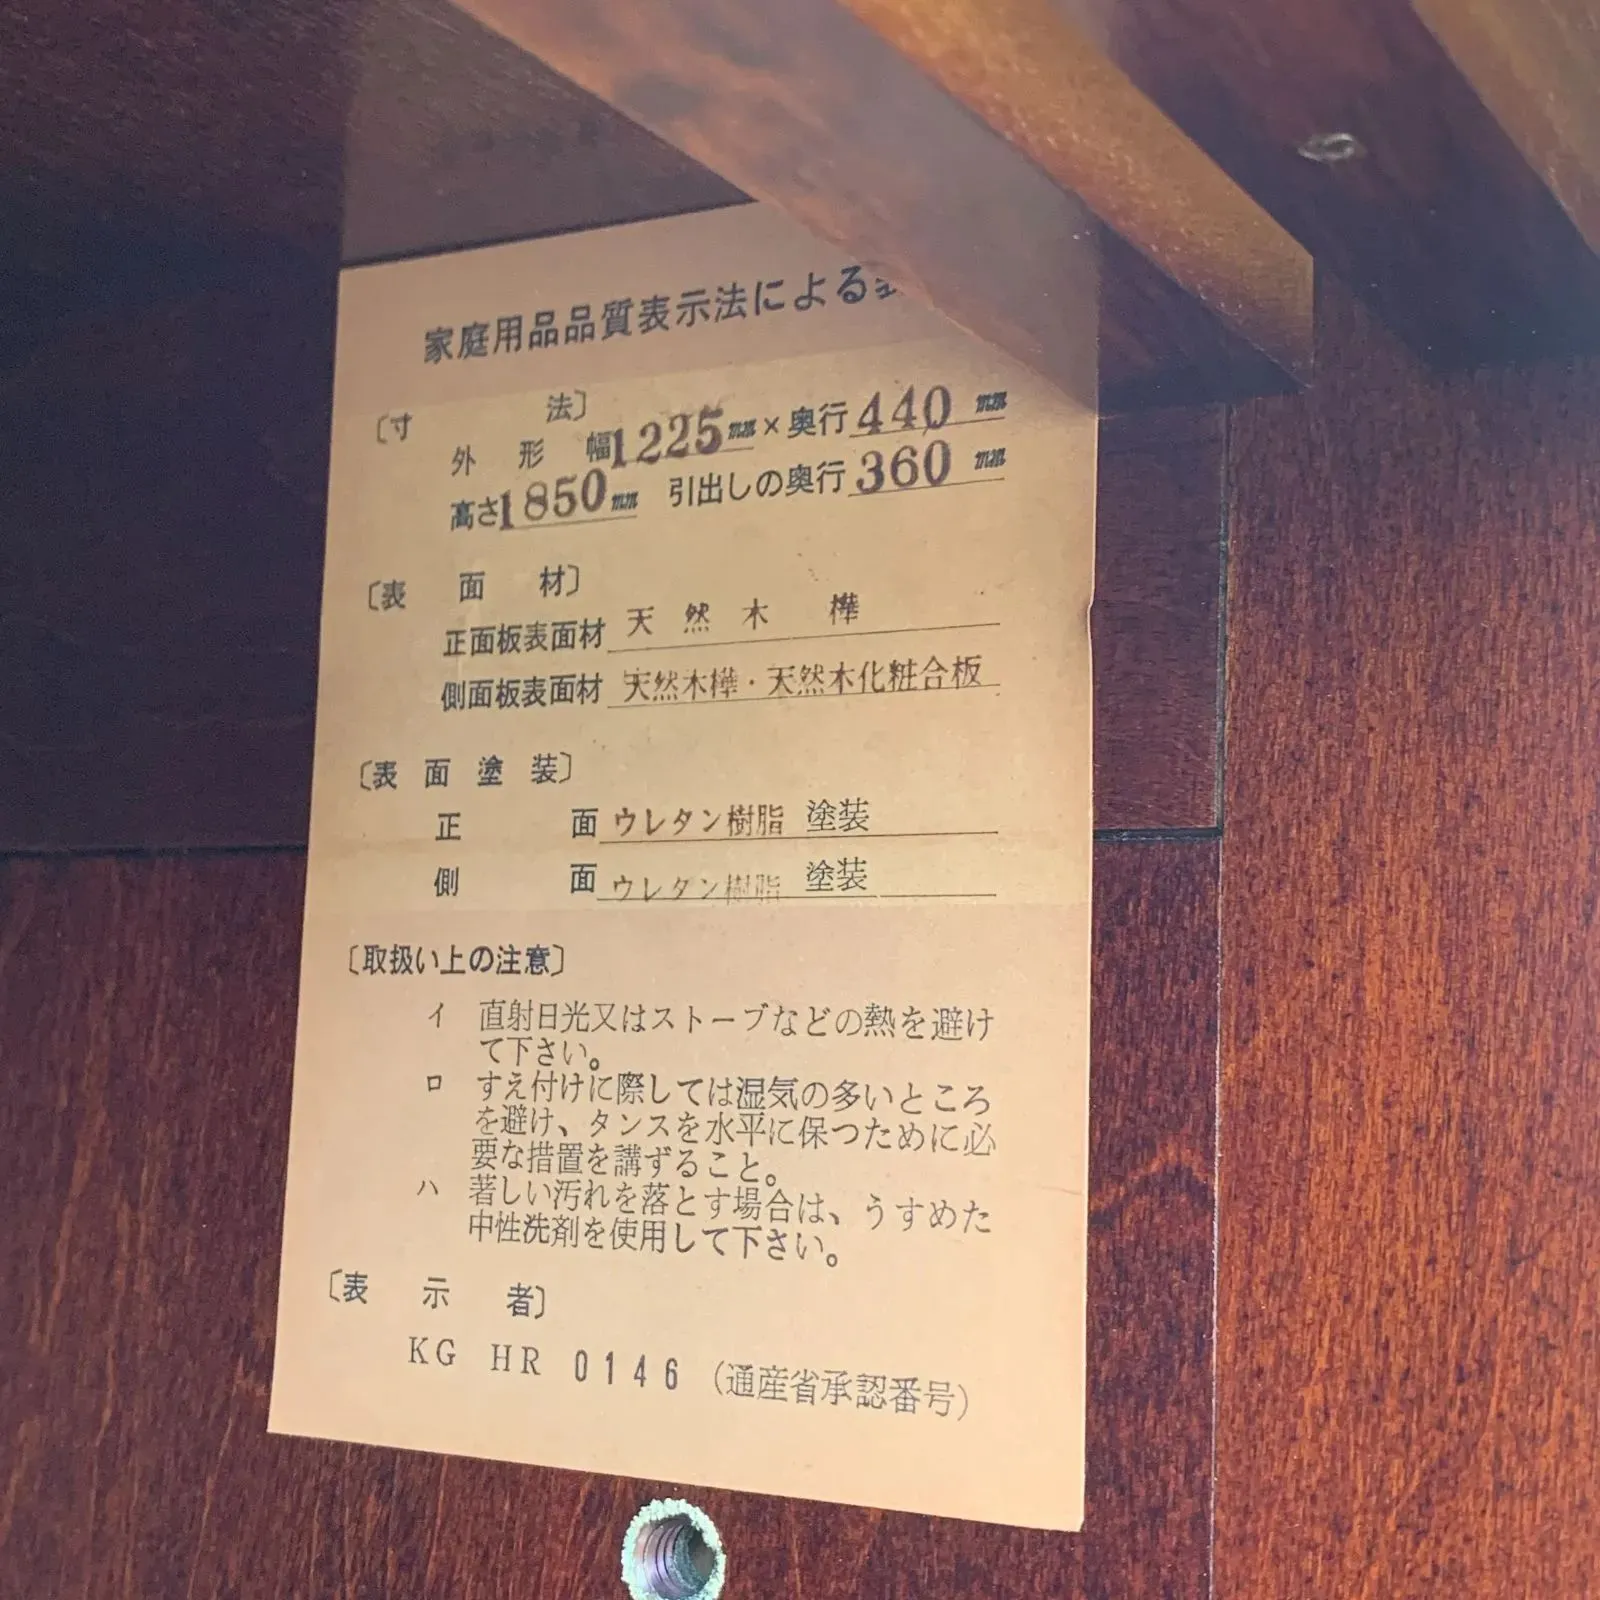 家庭用品品質表示法による
〔寸法〕
外形 幅1225mm×奥行440mm
高さ1850mm 引出しの奥行360mm
〔表面材〕
正面板表面材 天然木 樺
側面板表面材 天然木樺・天然木化粧合板
〔表面塗装〕
正面 ウレタン樹脂 塗装
側面 ウレタン樹脂 塗装
〔取扱い上の注意〕
イ 直射日光又はストーブなどの熱を避け
て下さい。
ロ すえ付けに際しては湿気の多いところ
を避け、タンスを水平に保つために必
要な措置を講ずること。
ハ 著しい汚れを落とす場合は、うすめた
中性洗剤を使用して下さい。
〔表示者〕
KG HR 0146 (通産省承認番号)